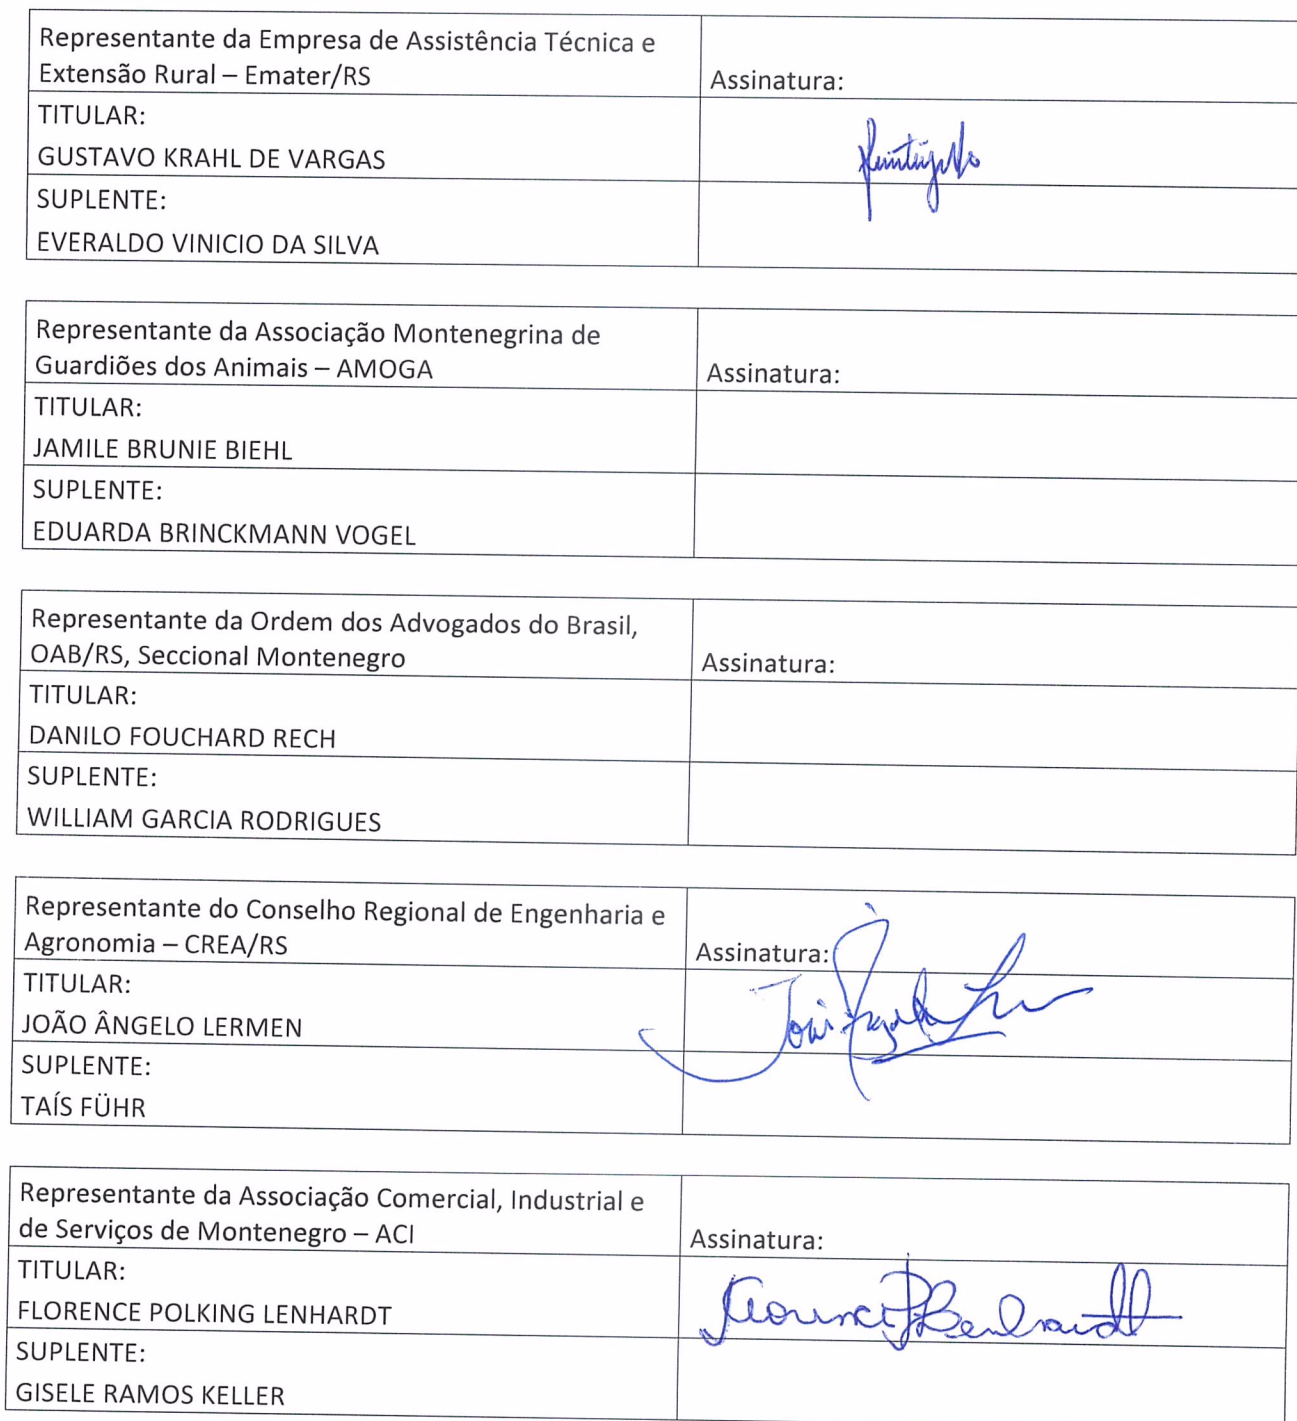 Representante da Empresa de Assistência Técnica e
Extensão Rural – Emater/RS
Assinatura:
TITULAR:
GUSTAVO KRAHL DE VARGAS
SUPLENTE:
EVERALDO VINICIO DA SILVA
Representante da Associação Montenegrina de
Guardiões dos Animais – AMOGA
Assinatura:
TITULAR:
JAMILE BRUNIE BIEHL
SUPLENTE:
EDUARDA BRINCKMANN VOGEL
Representante da Ordem dos Advogados do Brasil,
OAB/RS, Seccional Montenegro
Assinatura:
TITULAR:
DANILO FOUCHARD RECH
SUPLENTE:
WILLIAM GARCIA RODRIGUES
Representante do Conselho Regional de Engenharia e
Agronomia – CREA/RS
Assinatura:
TITULAR:
JOÃO ÂNGELO LERMEN
SUPLENTE:
TAÍS FÜHR
Representante da Associação Comercial, Industrial e
de Serviços de Montenegro – ACI
Assinatura:
TITULAR:
FLORENCE POLKING LENHARDT
SUPLENTE:
GISELE RAMOS KELLER